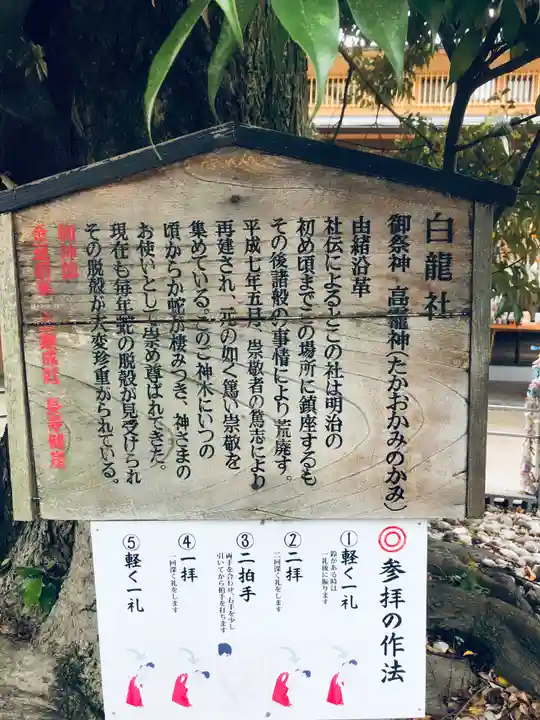 白龍社
御祭神 高龗神(たかおかみのかみ)
由緒沿革
社伝によるとこの社は明治の
初め頃までこの場所に鎮座するも
その後諸般の事情により荒廃す。
平成七年五月、崇敬者の篤志により
再建され、元の如く篤い崇敬を
集めている。このご神木にいつの
頃からか蛇が棲みつき、神さまの
お使いとして崇め尊ばれてきた。
現在も毎年蛇の脱殻が見受けられ
その脱殻が大変珍重がられている。
御神徳
◎参拝の作法
①軽く一礼
鈴がある時は
一礼後に振ります
②二拝
二回深く礼をします
③二拍手
両手を合わせ、右手を少し
引いてから拍手を打ちます
④一拝
一回深く礼をします
⑤軽く一礼